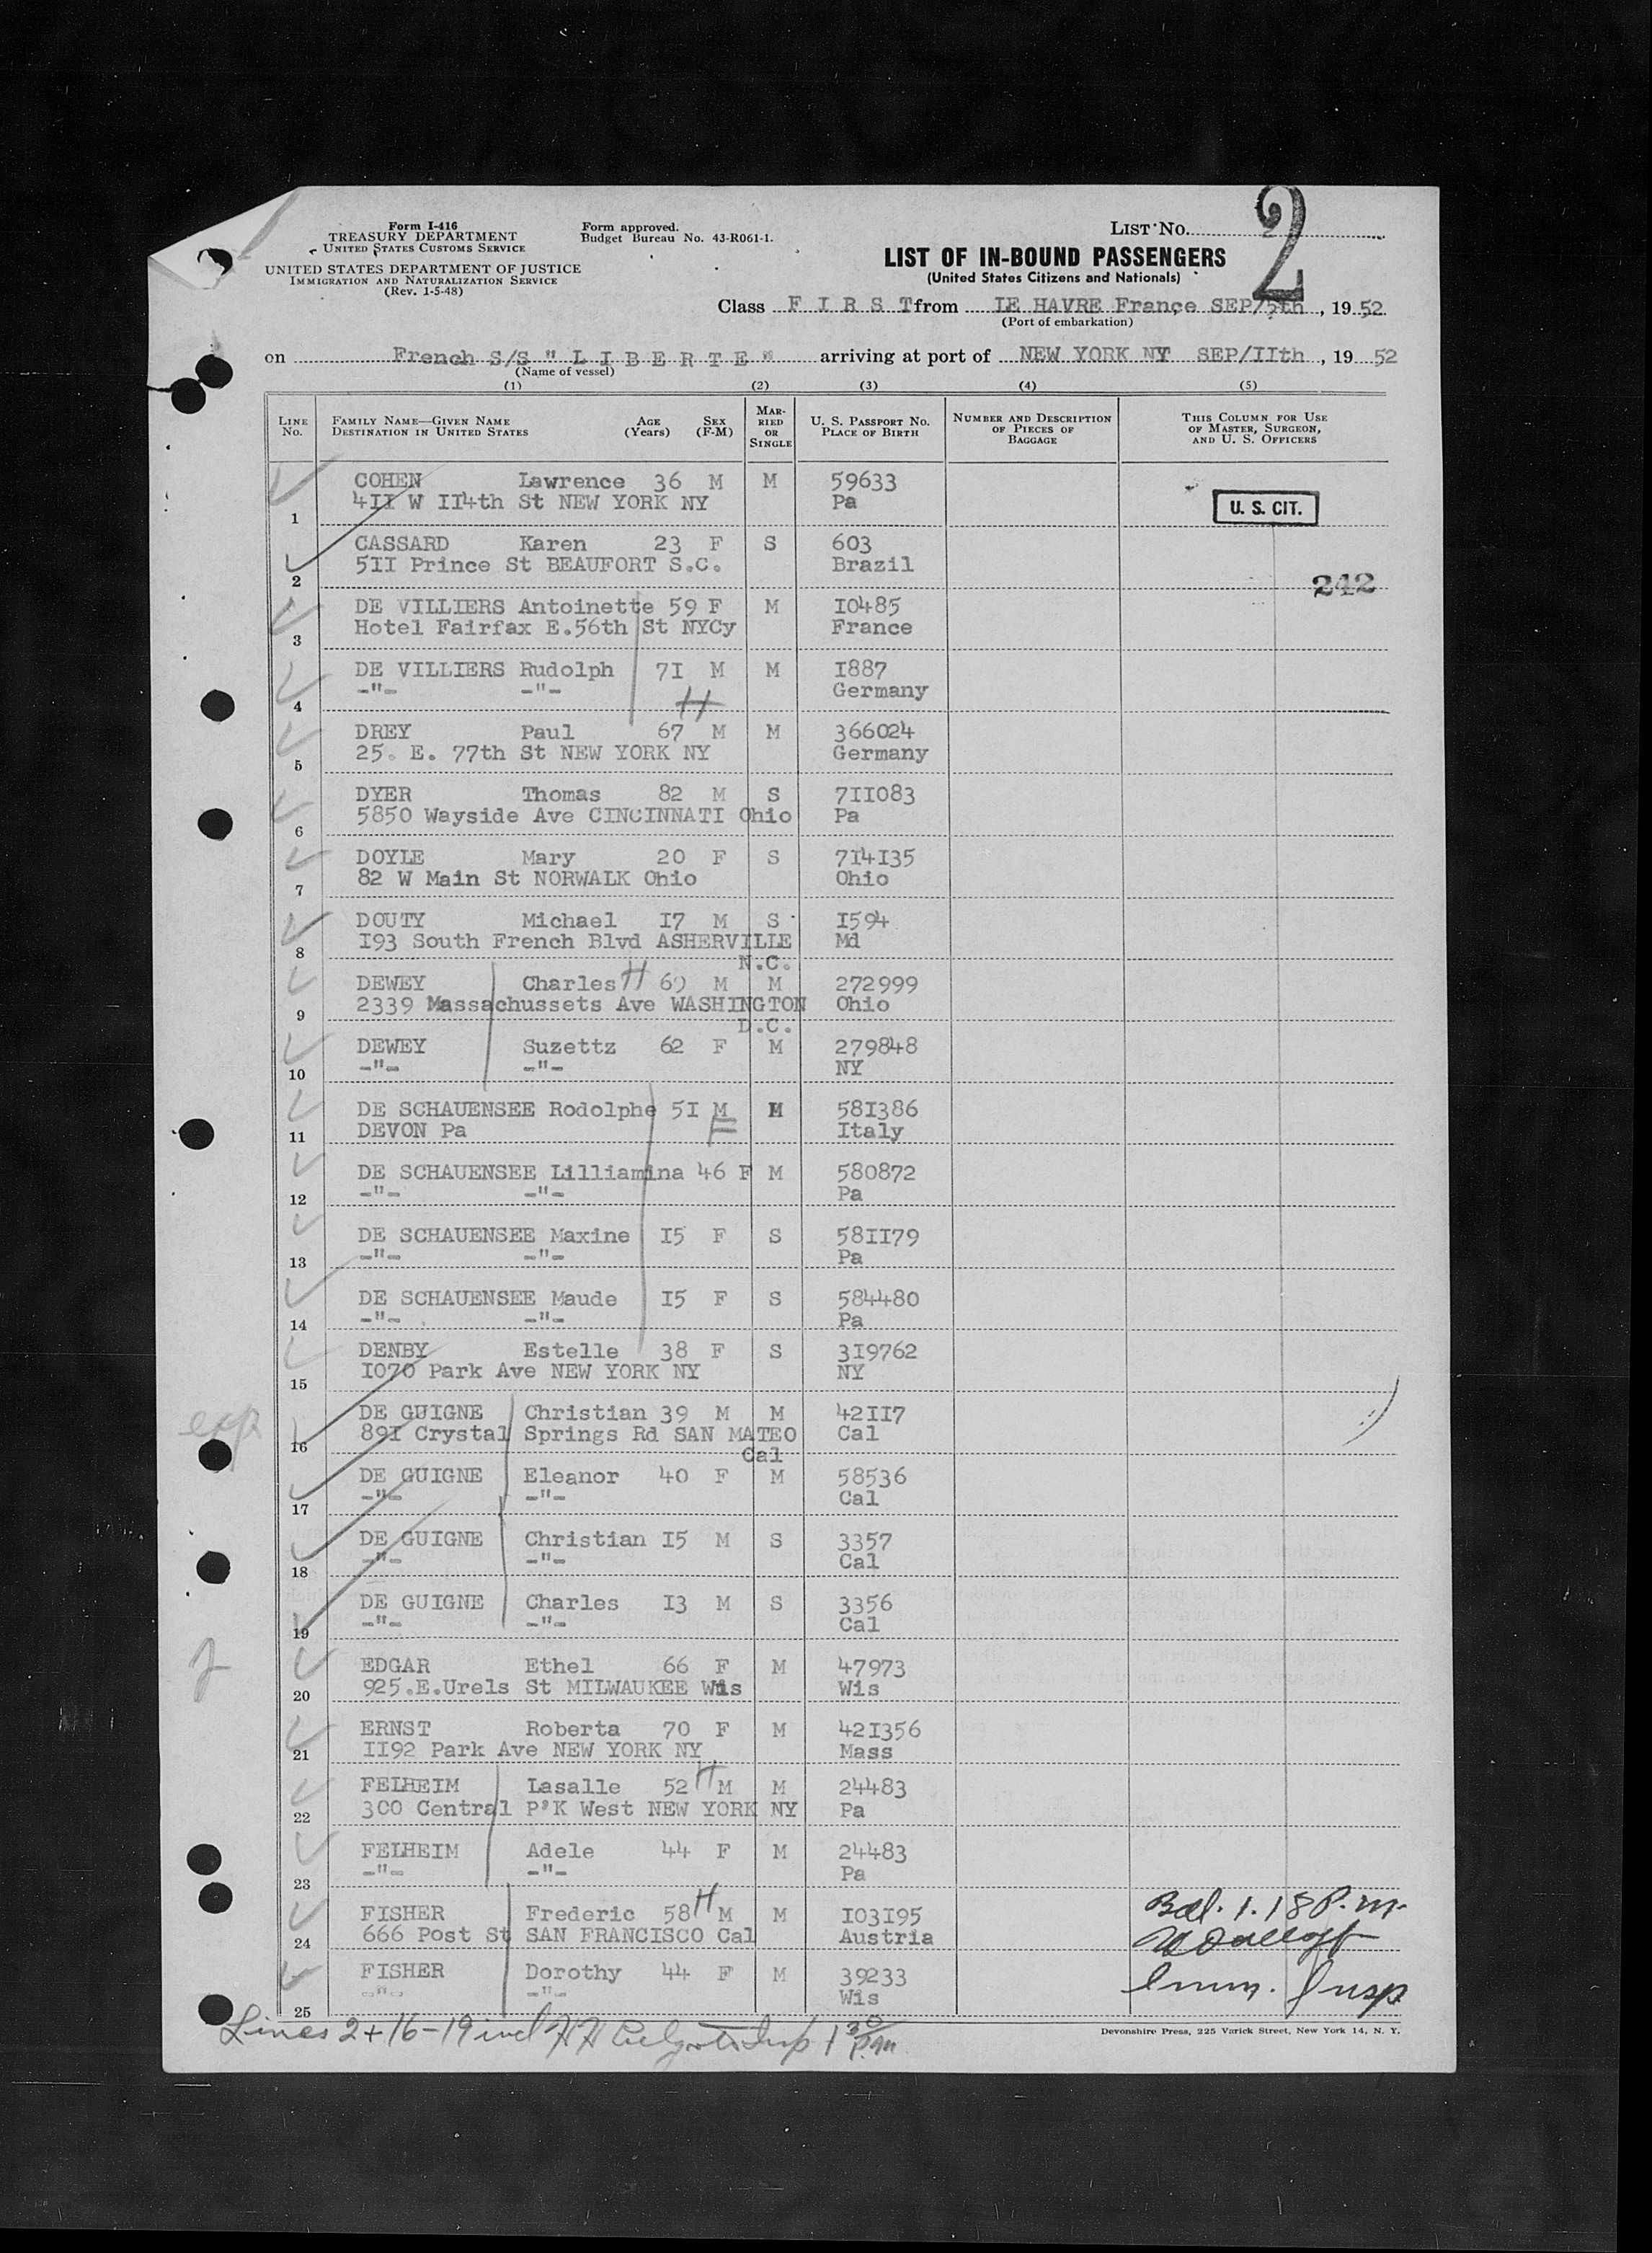 Form I-416
TREASURY DEPARTMENT
UNITED STATES CUSTOMS SERVICE
UNITED STATES DEPARTMENT OF JUSTICE
IMMIGRATION AND NATURALIZATION SERVICE
(Rev. 1-5-48)
Form approved.
Budget Bureau No. 43-R061-1.
LIST No. 2
LIST OF IN-BOUND PASSENGERS
(United States Citizens and Nationals)
Class F I R S T from LE HAVRE France SEP/5th, 1952
(Port of embarkation)
on French S/S " L I B E R T E " arriving at port of NEW YORK NY SEP/IIth, 19 52
(Name of vessel)
(1) (2) (3) (4) (5)
LINE No. FAMILY NAME—GIVEN NAME DESTINATION IN UNITED STATES AGE (Years) SEX (F-M) MARRIED OR SINGLE U. S. PASSPORT NO. PLACE OF BIRTH NUMBER AND DESCRIPTION OF PIECES OF BAGGAGE THIS COLUMN FOR USE OF MASTER, SURGEON, AND U. S. OFFICERS
COHEN Lawrence 36 M M 59633
1 4II W II4th St NEW YORK NY Pa U. S. CIT.
CASSARD Karen 23 F S 603
2 5II Prince St BEAUFORT S.C. Brazil 242
DE VILLIERS Antoinette 59 F M I0485
3 Hotel Fairfax E.56th St NYCy France
DE VILLIERS Rudolph 7I M M I887
4 -"- -"- H Germany
DREY Paul 67 M M 366024
5 25. E. 77th St NEW YORK NY Germany
DYER Thomas 82 M S 7II083
6 5850 Wayside Ave CINCINNATI Ohio Pa
DOYLE Mary 20 F S 7I4I35
7 82 W Main St NORWALK Ohio Ohio
DOUTY Michael I7 M S I594
8 I93 South French Blvd ASHERVILLE Md
N.C.
DEWEY Charles H 69 M M 272999
9 2339 Massachussets Ave WASHINGTON Ohio
D.C.
DEWEY Suzettz 62 F M 279848
10 -"- -"- NY
DE SCHAUENSEE Rodolphe 5I M M 58I386
11 DEVON Pa Italy
DE SCHAUENSEE Lilliamina 46 F M 580872
12 -"- -"- Pa
DE SCHAUENSEE Maxine I5 F S 58II79
13 -"- -"- Pa
DE SCHAUENSEE Maude I5 F S 584480
14 -"- -"- Pa
DENBY Estelle 38 F S 3I9762
15 I070 Park Ave NEW YORK NY NY
DE GUIGNE Christian 39 M M 42II7
exp 16 89I Crystal Springs Rd SAN MATEO Cal
Cal
DE GUIGNE Eleanor 40 F M 58536
17 -"- -"- Cal
DE GUIGNE Christian I5 M S 3357
18 -"- -"- Cal
DE GUIGNE Charles I3 M S 3356
19 -"- -"- Cal
EDGAR Ethel 66 F M 47973
20 925.E.Urels St MILWAUKEE Wis Wis
ERNST Roberta 70 F M 42I356
21 II92 Park Ave NEW YORK NY Mass
FEIHEIM Lasalle 52 H M M 24483
22 300 Central P'K West NEW YORK NY Pa
FEIHEIM Adele 44 F M 24483
23 -"- -"- Pa
FISHER Frederic 58 H M M I03I95
24 666 Post St SAN FRANCISCO Cal Austria
FISHER Dorothy 44 F M 39233
25 -"- -"- Wis
Bdl. 1.18 P.m.
Imm. Insp
Lines 2+16-19 incl
1 30 P.m
Devonshire Press, 225 Varick Street, New York 14, N. Y.